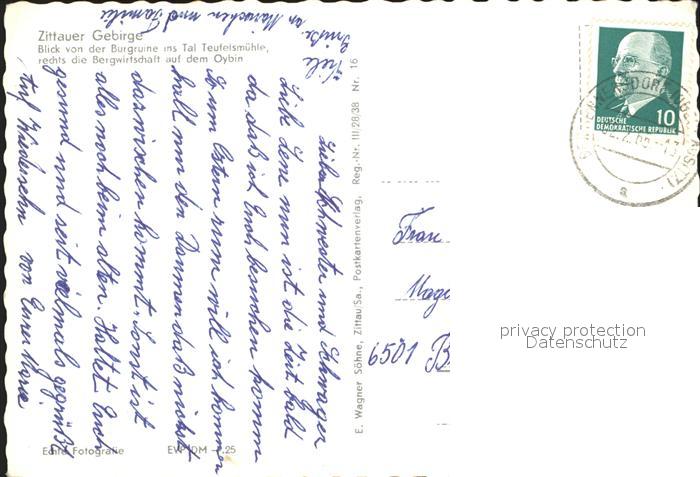 Zittauer Gebirge
Blick von der Burgruine ins Tal Teufelsmühle,
rechts die Bergwirtschaft auf dem Oybin
Liebe Schwester und Schwager
Lieb Lene nun ist die Zeit bald
da daß ich Euch besuchen komm
zum Ostern rum will ich kommen
halt nur den Daumen daß nichts
dazwischen kommt. Sonst ist
alles noch beim alten. Haltet Euch
gesund und seit vielmals gegrüßt
Auf Wiedersehn von Eurer Marie
Viele
Grüße
an Mariechen und Familie
Echte Fotografie
EVP DM -.25
E. Wagner Söhne, Zittau/Sa., Postkartenverlag, Reg.-Nr. III/28/38 Nr. 16
DEUTSCHE
DEMOKRATISCHE REPUBLIK
10
a
Frau
6501 B
privacy protection
Datenschutz